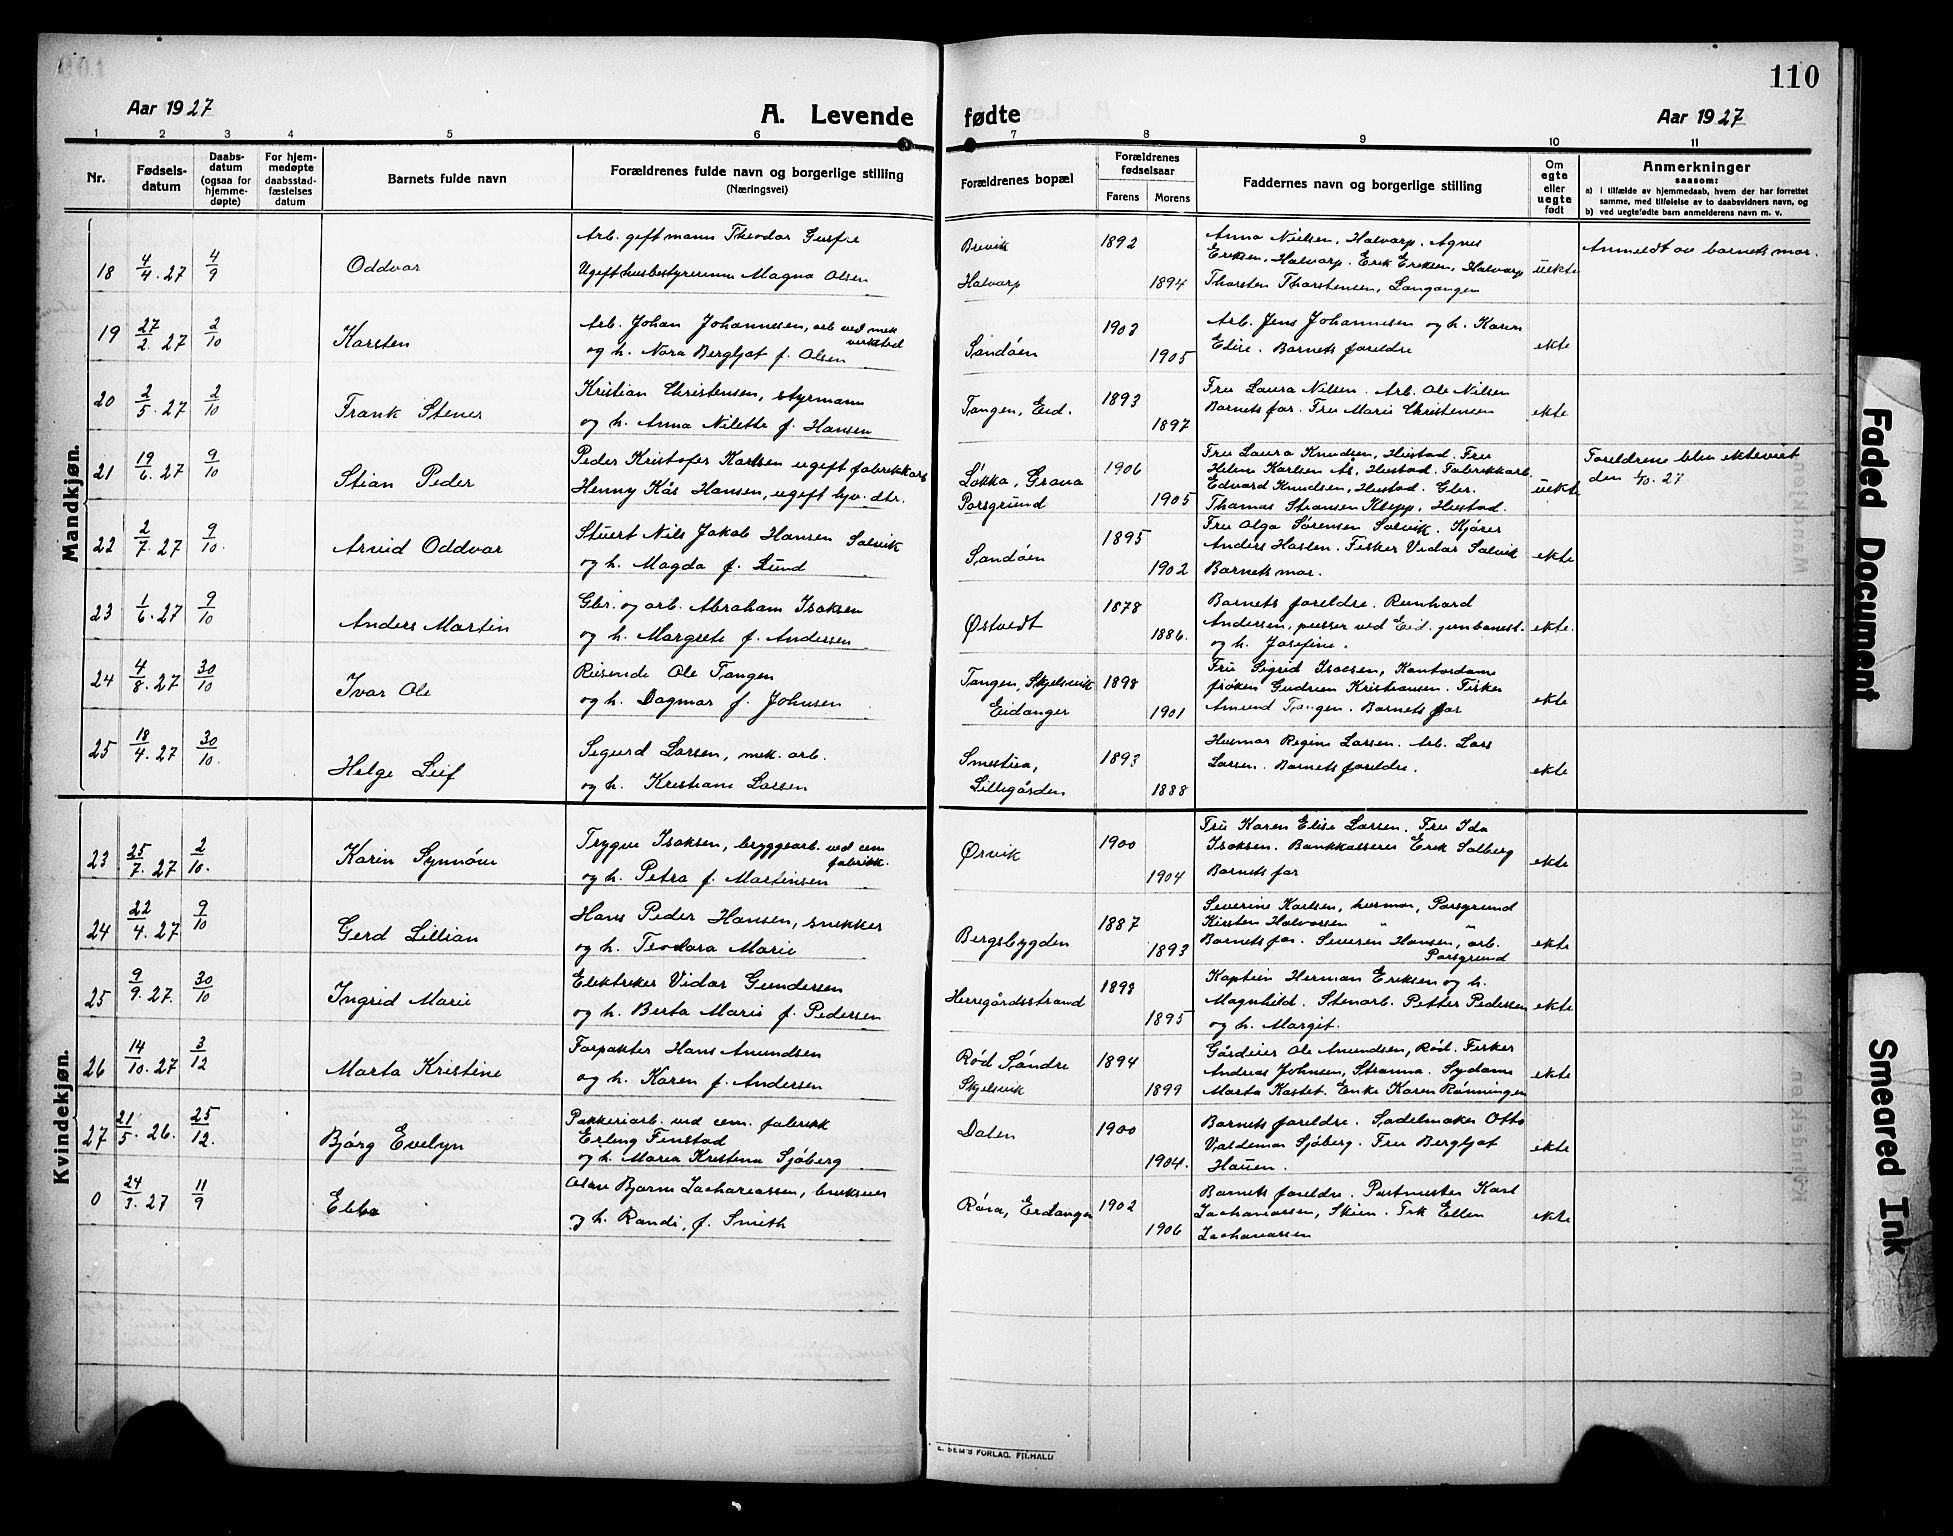 110
Aar 1927
A. Levende
fødte
Aar 1927
1 2 3 4 5 6 7 8 9 10 11
Nr.
Fødsels-
datum
Daabs-
datum
(ogsaa for
hjemme-
døpte)
For hjem-
medøpte
daabsstad-
fæstelses
datum
Barnets fulde navn
Forældrenes fulde navn og borgerlige stilling
(Næringsvei)
Forældrenes bopæl
Forældrenes
fødselsaar
Farens
Morens
Faddernes navn og borgerlige stilling
Om
egte
eller
uegte
født
Anmerkninger
saasom:
a) i tilfælde av hjemmedaab, hvem der har forrettet
samme, med tilføielse av to daabsvidners navn, og
b) ved uegtefødte barn anmelderens navn m. v.
Mandkjøn.
18 4/4. 27 4/9 Oddvar
Arb. gift mann Theodor
Ugift husbestyrerinne Magna Olsen
Brevik
Halvarp
1892
1894
Anna Nielsen, Halvarp. Agnes
Eriksen, Halvarp. Erik Eriksen, Halvarp
Thorsten Thorstensen, Langangen
uekte
Anmeldt av barnets mor.
19 27/2. 27 2/10 Karsten
Arb. Johan Johannesen, arb ved mek
verksted
og h. Nora Bergljot f. Olsen
Sandøen
1903
1905
Arb. Jens Johannesen og h. Karen
Elise. Barnets foreldre
ekte
20 2/5. 27 2/10 Frank Stener
Kristian Christensen, styrmann
og h. Anna Nilette f. Hansen
Tangen, Eid.
1893
1897
Fru Laura Nilsen. Arb. Ole Nilsen
Barnets far. Fru Marie Christensen
ekte
21 19/6. 27 9/10 Stian Peder
Peder Kristofer Karlsen ugift fabrikkarb
Henny Kås Hansen, ugift tyv. dtr.
Løkka, Grava
Porsgrund
1906
1905
Fru Laura Knudsen, Hustad. Fru
Helene Karlsen Hustad. Fabrikkarb.
Edvard Knudsen, Hustad. Gbr.
Thomas Stransen Klepp, Hustad.
uekte
Foreldrene blev ekteviet
den 1/10. 27
22 2/7. 27 9/10. Arvid Oddvar
Stuert Nils Jakob Hansen Salvik
og h. Magda f. Lund
Sandøen
1895
1902
Fru Olga Sørensen Salvik. Kjører
Anders Haslen. Fisker Vidar Salvik
Barnets mor.
ekte
23 1/6. 27 9/10 Anders Martin
Gbr. og arb. Abraham Isaksen
og h. Margrete f. Andersen
Østvedt
1878
1886.
Barnets foreldre. Reinhard
Andersen, pusser ved Eid. jernbanest.
og h. Josefine.
ekte.
24 4/8. 27 30/10 Ivar Ole
Reisende Ole Tangen
og h. Dagmar f. Johnsen
Tangen, Skjelsvik
Eidanger
1898
1901
Fru Sigrid Isaksen, Kontordame
frøken Gudrun Kristiansen. Fisker
Amund Tangen. Barnets far
ekte
25 18/4. 27 30/10. Helge Leif
Sigurd Larsen, mek. arb.
og h. Kristiane Larsen
Smestua,
Lillegården
1893
1888
Husmor Regine Larsen. Arb. Lars
Larsen. Barnets foreldre.
ekte
Kvindekjøn.
23 25/7. 27 2/10. Karin Synnøve
Trygve Isaksen, bryggearb. ved cem
fabrikk.
og h. Petra f. Martinsen
Ørvik
1900
1904
Fru Karen Elise Larsen. Fru Ida
Isaksen. Bankkasserer Erik Salberg
Barnets far
ekte
24 22/4. 27 9/10 Gerd Lillian
Hans Peder Hansen, snekker
og h. Teodora Marie
Bergsbygden
1887
1893
Severine Karlsen, husmor, Porsgrund
Kirsten Halvorsen " "
Barnets far. Severin Hansen, arb.
Porsgrund
ekte
25 9/9. 27. 30/10 Ingrid Marie
Elektriker Vidar Gundersen
og h. Berta Marie f. Pedersen
Herregårdsstrand
1898
1895
Kaptein Herman Eriksen og h.
Magnhild. Stenarb. Petter Pedersen
og h. Margit.
ekte
26 14/10. 27 3/12 Marta Kristine
Forpakter Hans Amundsen
og h. Karen f. Andersen
Rød Søndre
Skjelsvik
1894
1899
Gårdeier Ole Amundsen, Rød. Fisker
Andreas Johnsen, Stranna. Sydame
Marta Kastet. Enke Karen Rønningen
ekte
27 21/5. 26. 25/12. Bjørg Evelyn
Pakkeriarb. ved cem. fabrikk
Erling Finstad
og h. Maria Kristena Sjøberg
Dalen
1900
1904.
Barnets foreldre. Sadelmaker Otto
Valdemar Sjøberg. Fru Bergljot
Hauen.
ekte
0 24/3. 27 11/9 Ebba
Olav Bjarne Zachariassen, brukseier
og h. Randi, f. Smith
Røra, Eidanger
1902
1906
Barnets foreldre. Postmester Karl
Zachariassen, Skien. Frk Ellen
Zachariassen
ekte
E. SEM'S FORLAG. FR.HALD
Faded Document
Smeared Ink